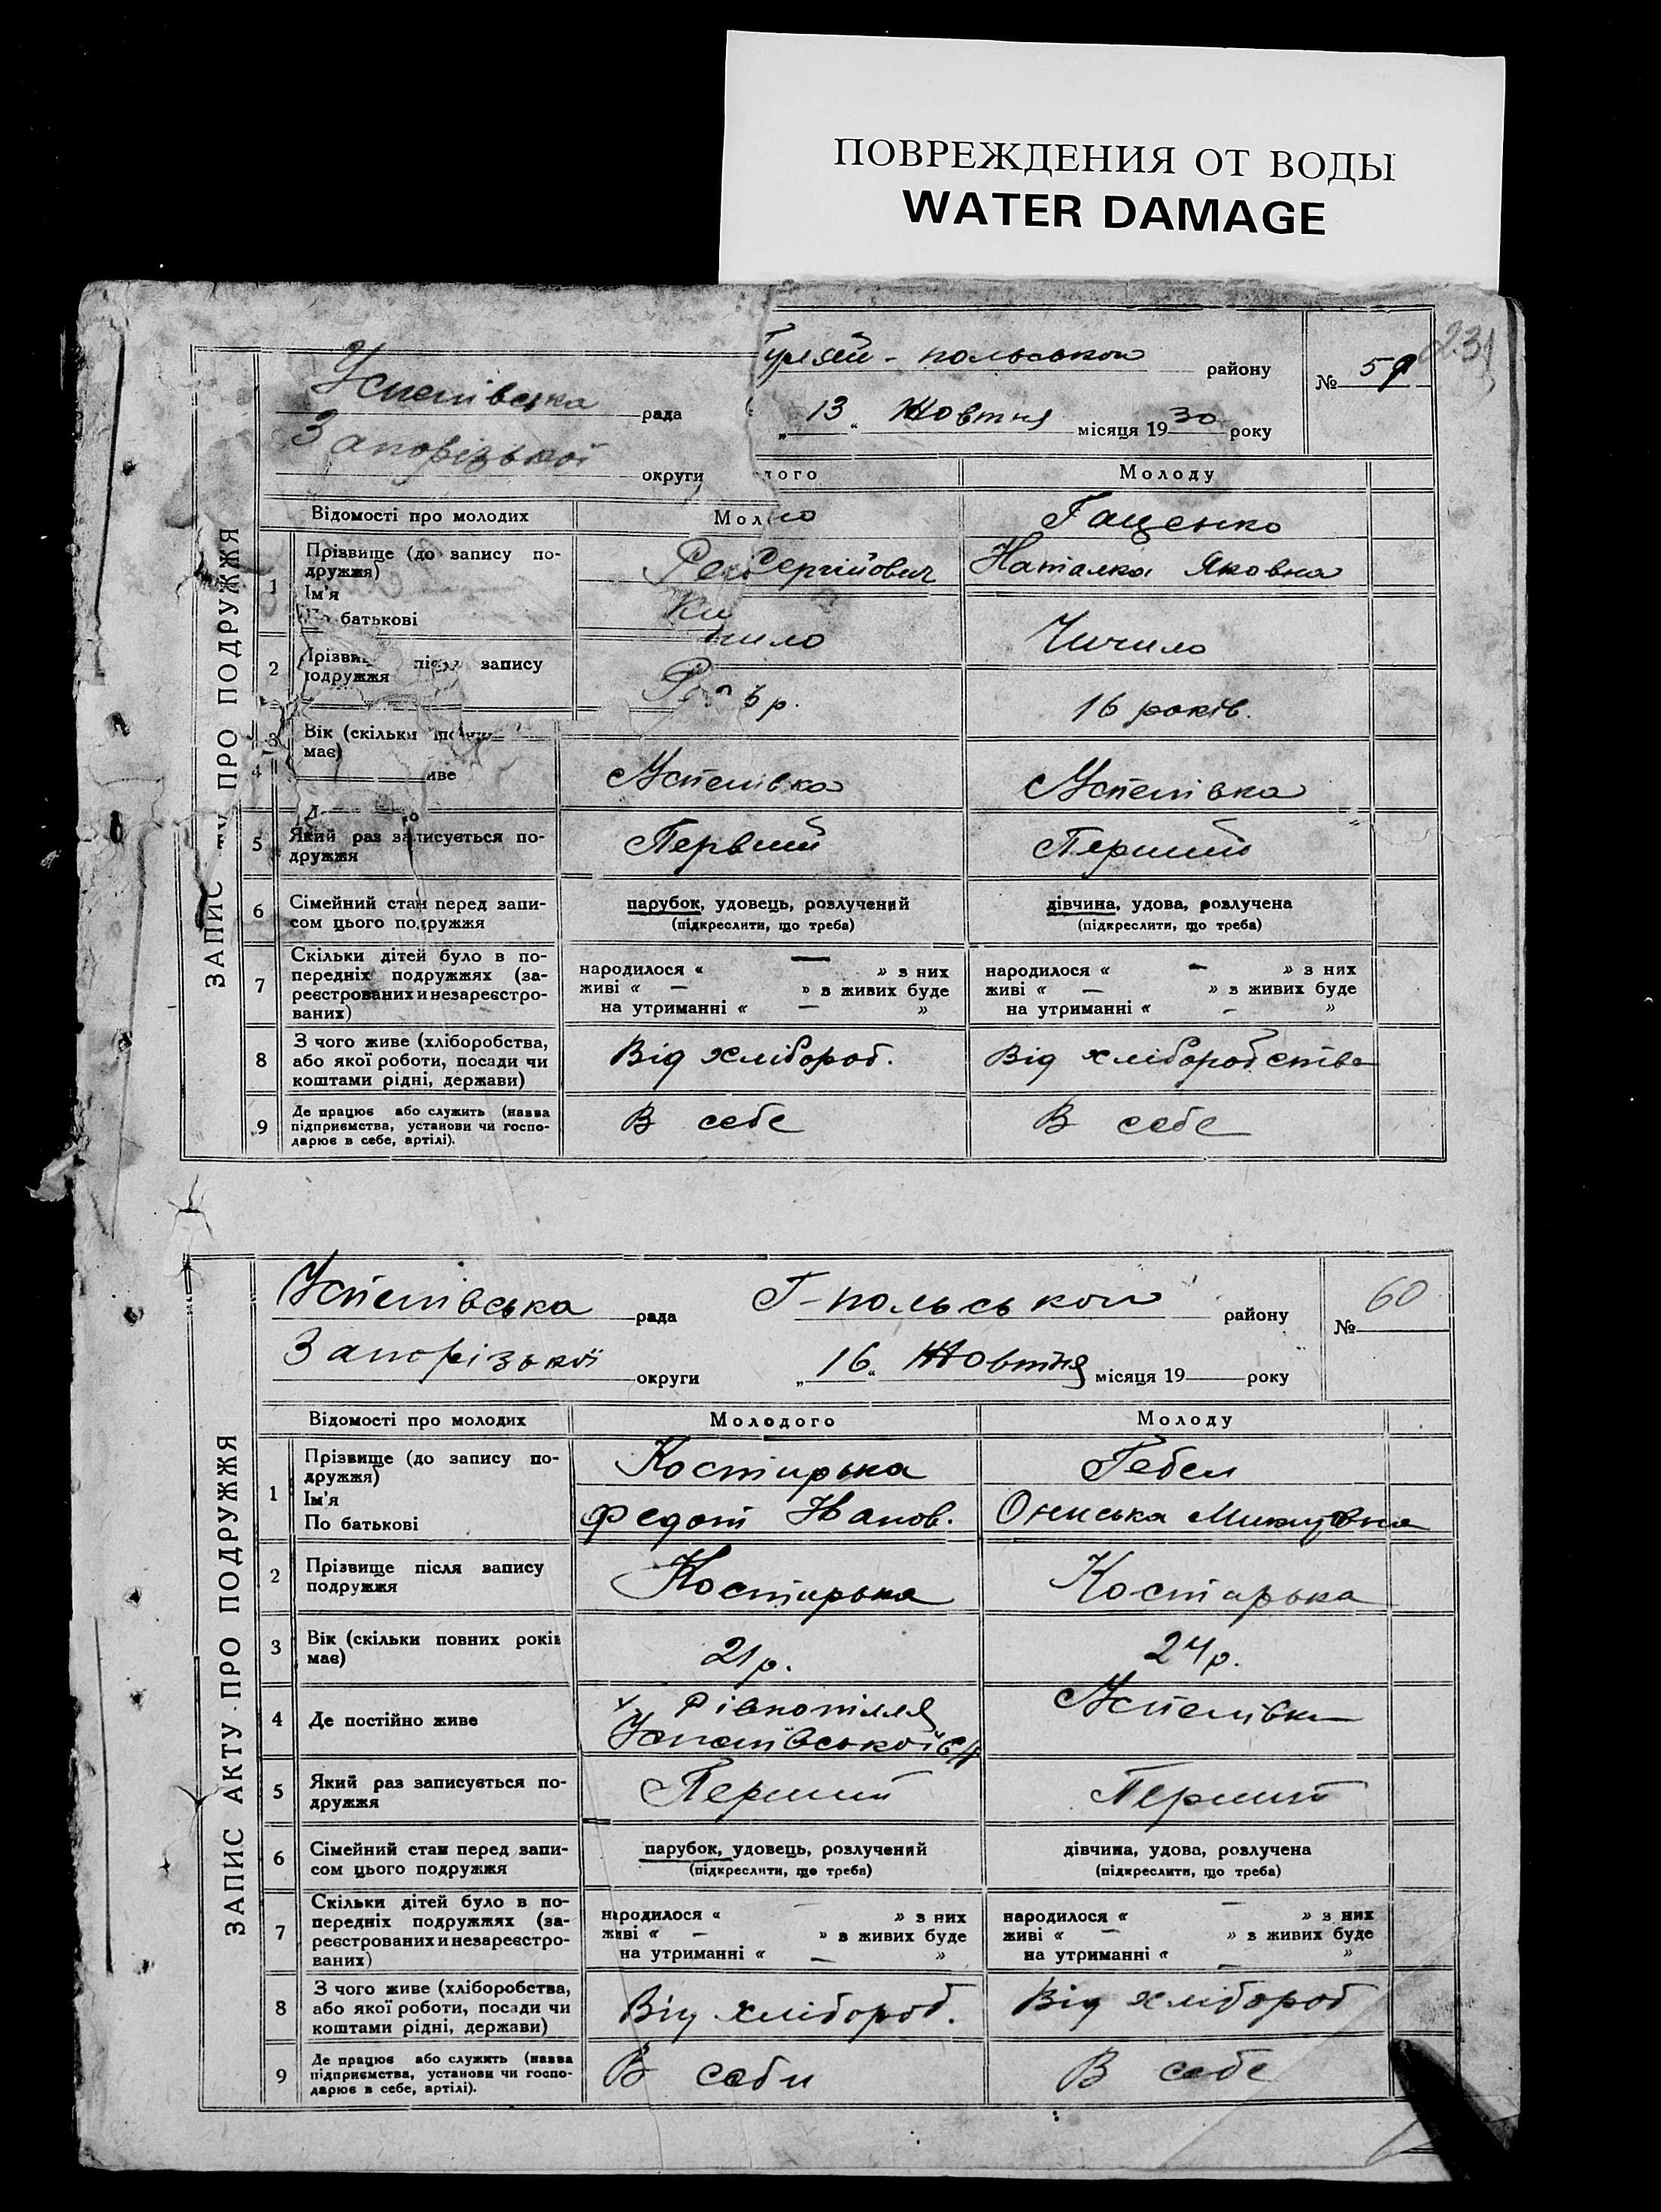 ПОВРЕЖДЕНИЯ ОТ ВОДЫ
WATER DAMAGE
231
ЗАПИС ПРО ПОДРУЖЖЯ
Успенівська рада
Гуляй-польської району
№ 59
Запорізької округи
„13“ Жовтня місяця 1930 року
Відомості про молодих
Мол
ого
Молоду
1
Прізвище (до запису по-
дружжя)
Ім'я
батькові
Гаценко
Сергійович
Наталка Яковна
2
запису
подружжя
Чичило
3
Вік (скільки
має)
р.
16 років.
4
иве
Успенівка
Успенівка
5
Який раз записується по-
дружжя
Первий
Перший
6
Сімейний стан перед запи-
сом цього подружжя
парубок, удовець, розлучений
(підкреслити, що треба)
дівчина, удова, розлучена
(підкреслити, що треба)
7
Скільки дітей було в по-
передніх подружжях (за-
реєстрованих и незареєстро-
ваних)
народилося « — » з них
живі « — » з живих буде
на утриманні « — »
народилося « — » з них
живі « — » з живих буде
на утриманні « — »
8
З чого живе (хліборобства,
або якої роботи, посади чи
коштами рідні, держави)
Від хлібороб.
Від хліборобства
9
Де працює або служить (назва
підприємства, установи чи госпо-
дарює в себе, артілі).
В себе
В себе
ЗАПИС АКТУ ПРО ПОДРУЖЖЯ
Успенівська рада
Г-польської району
№ 60
Запорізької округи
„16“ Жовтня місяця 19 року
Відомості про молодих
Молодого
Молоду
1
Прізвище (до запису по-
дружжя)
Ім'я
По батькові
Костирька
Гебел
Федот Іванов.
Ониська
2
Прізвище після запису
подружжя
Костирька
Костирька
3
Вік (скільки повних років
має)
21 р.
24 р.
4
Де постійно живе
х. Рівнопілля
Успенівської с/р
Успенівка
5
Який раз записується по-
дружжя
Перший
Перший
6
Сімейний стан перед запи-
сом цього подружжя
парубок, удовець, розлучений
(підкреслити, що треба)
дівчина, удова, розлучена
(підкреслити, що треба)
7
Скільки дітей було в по-
передніх подружжях (за-
реєстрованих и незареєстро-
ваних)
народилося « — » з них
живі « — » з живих буде
на утриманні « — »
народилося « — » з них
живі « — » з живих буде
на утриманні « — »
8
З чого живе (хліборобства,
або якої роботи, посади чи
коштами рідні, держави)
Від хлібороб.
Від хлібороб
9
Де працює або служить (назва
підприємства, установи чи госпо-
дарює в себе, артілі).
В себи
В себе